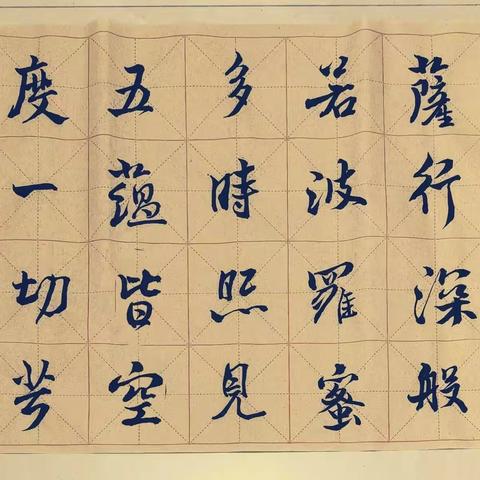 薩行深般
若波羅蜜
多時照見
五蘊皆空
度一切苦